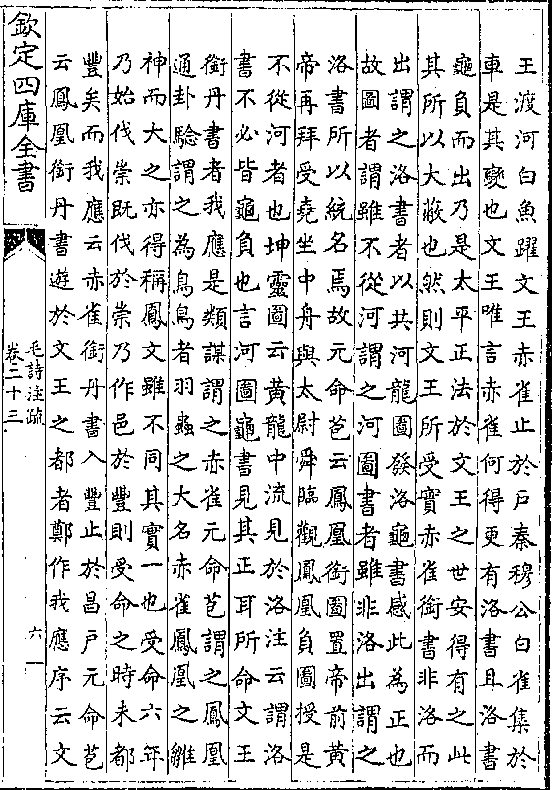 王渡河白魚躍文王赤雀止於戶秦穆公白雀集於
車是其變也文王唯言赤雀何得更有洛書且洛書
龜負而出乃是太平正法於文王之世安得有之此
其所以大蔽也然則文王所受實赤雀銜書非洛而
出謂之洛書者以其河龍圖發洛龜書感此為正也
故圖者謂雖不從河謂之河圖書者雖非洛出謂之
洛書所以統名焉故元命苞云鳳凰銜圖置帝前黄
帝再拜受堯坐中舟與太尉舜臨觀鳳凰負圖授是
不從河者也坤靈圖云黄龍中流見於洛注云謂洛
書不必皆龜負也言河圖龜書見其正耳所命文王
銜丹書者我應是類謀謂之赤雀元命苞謂之鳳凰
通卦驗謂之為鳥鳥者羽蟲之大名赤雀鳳凰之雛
神而大之亦得稱鳳文雖不同其實一也受命六年
乃始伐崇既伐於崇乃作邑於豐則受命之時未都
豐矣而我應云赤雀銜丹書入豐止於昌戶元命苞
云鳳凰銜丹書遊於文王之都者鄭作我應序云文
欽定四庫全書
毛詩注疏
卷二十三
六